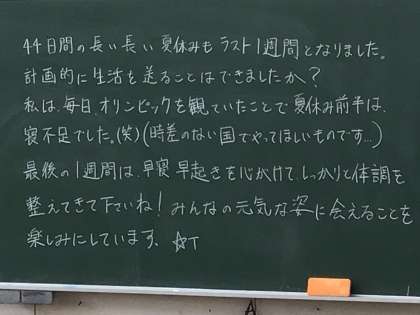 44日間の長い長い夏休みもラスト1週間となりました。
計画的に生活を送ることはできましたか？
私は、毎日、オリンピックを観ていたことで夏休み前半は、
寝不足でした。(笑)(時差のない国でやってほしいものです…)
最後の1週間は、早寝早起きを心がけて、しっかりと体調を
整えてきて下さいね！みんなの元気な姿に会えることを
楽しみにしています。☆T